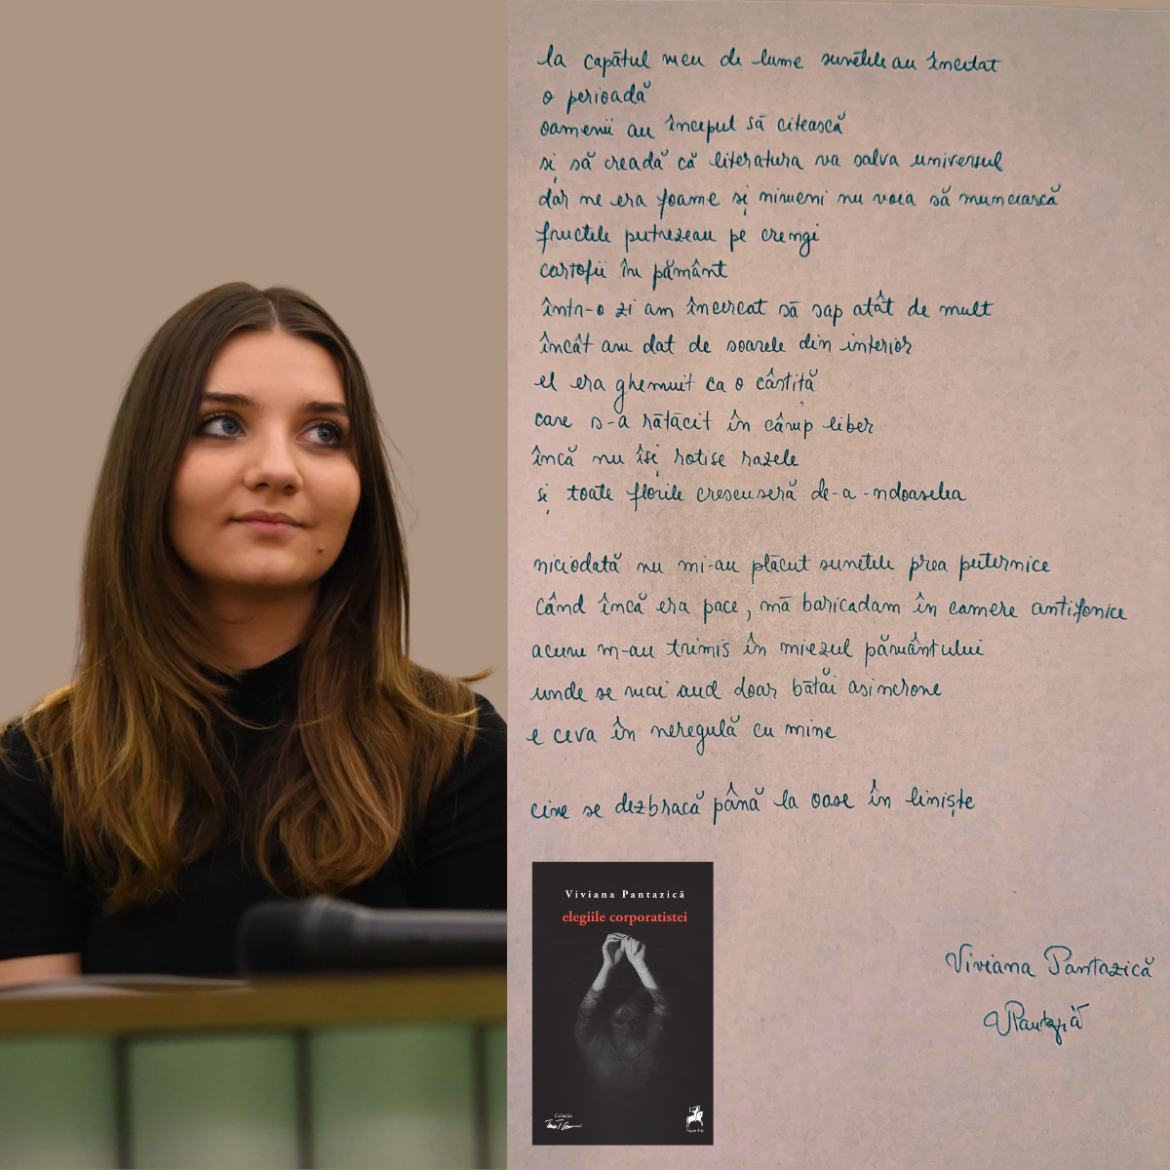 la capătul meu de lume sunetele au încetat
o perioadă
oamenii au început să citească
și să creadă că literatura va salva universul
dar ne era foame și nimeni nu voia să muncească
fructele putrezeau pe crengi
cartofii în pământ
într-o zi am încercat să sap atât de mult
încât am dat de soarele din interior
el era ghemuit ca o cârtiță
care s-a rătăcit în câmp liber
încă nu își rotise razele
și toate florile crescuseră de-a-ndoaselea
niciodată nu mi-au plăcut sunetele prea puternice
când încă era pace, mă baricadam în camere antifonice
acum m-au trimis în miezul pământului
unde se mai aud doar bătăi asincrone
e ceva în neregulă cu mine
cine se dezbracă până la oase în liniște
Viviana Pantazică
elegiile corporatistei
Colecția
Viviana Pantazică